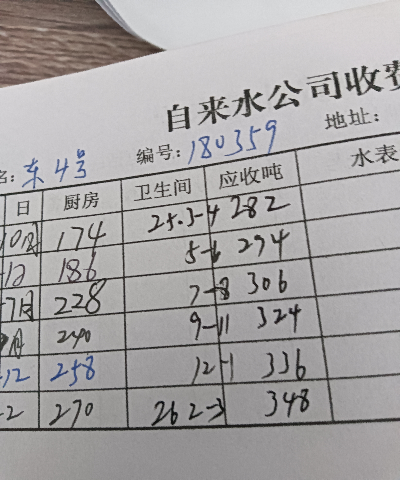 自来水公司收费
名: 东4号 编号: 180359 地址:
日 厨房 卫生间 应收吨 水表
10月 174 25.3-4 282
-12 186 5-6 294
-7月 228 7-8 306
月 240 9-11 324
-12 258 12-1 336
-2 270 26 2-3 348